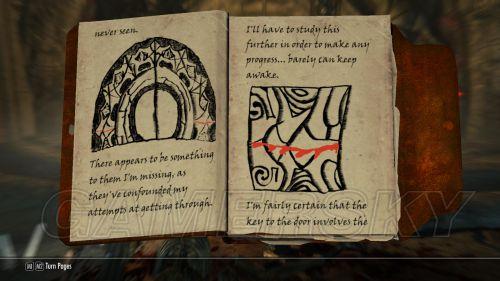 never seen.
There appears to be something
to them I'm missing, as
they've confounded my
attempts at getting through.
I'll have to study this
further in order to make any
progress... barely can keep
awake.
I'm fairly certain that the
key to the door involves the
Turn Pages